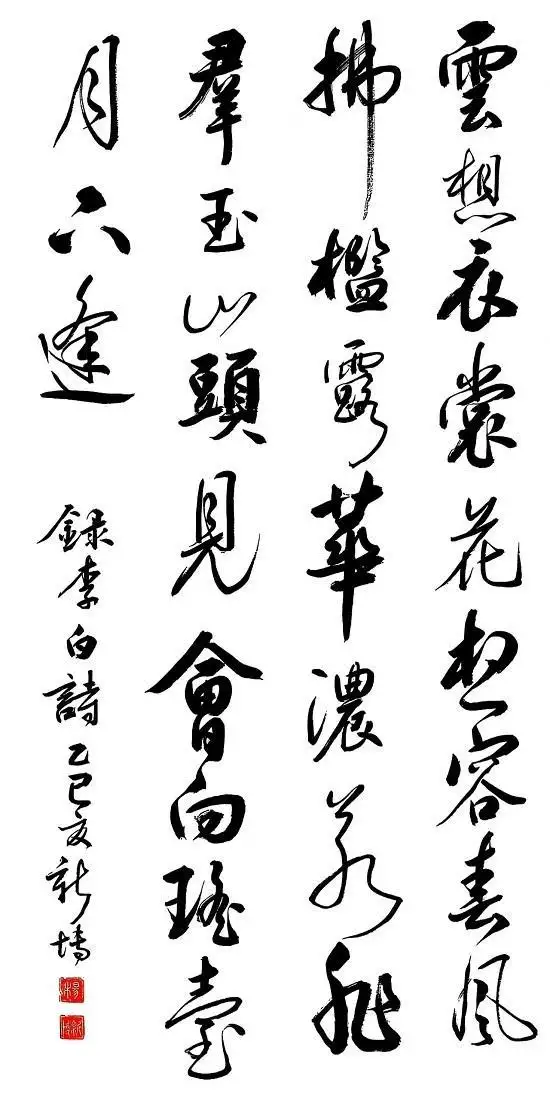 雲想衣裳花想容春風
拂檻露華濃若非
羣玉山頭見會向瑤臺
月下逢
録李白詩乙巳夏新